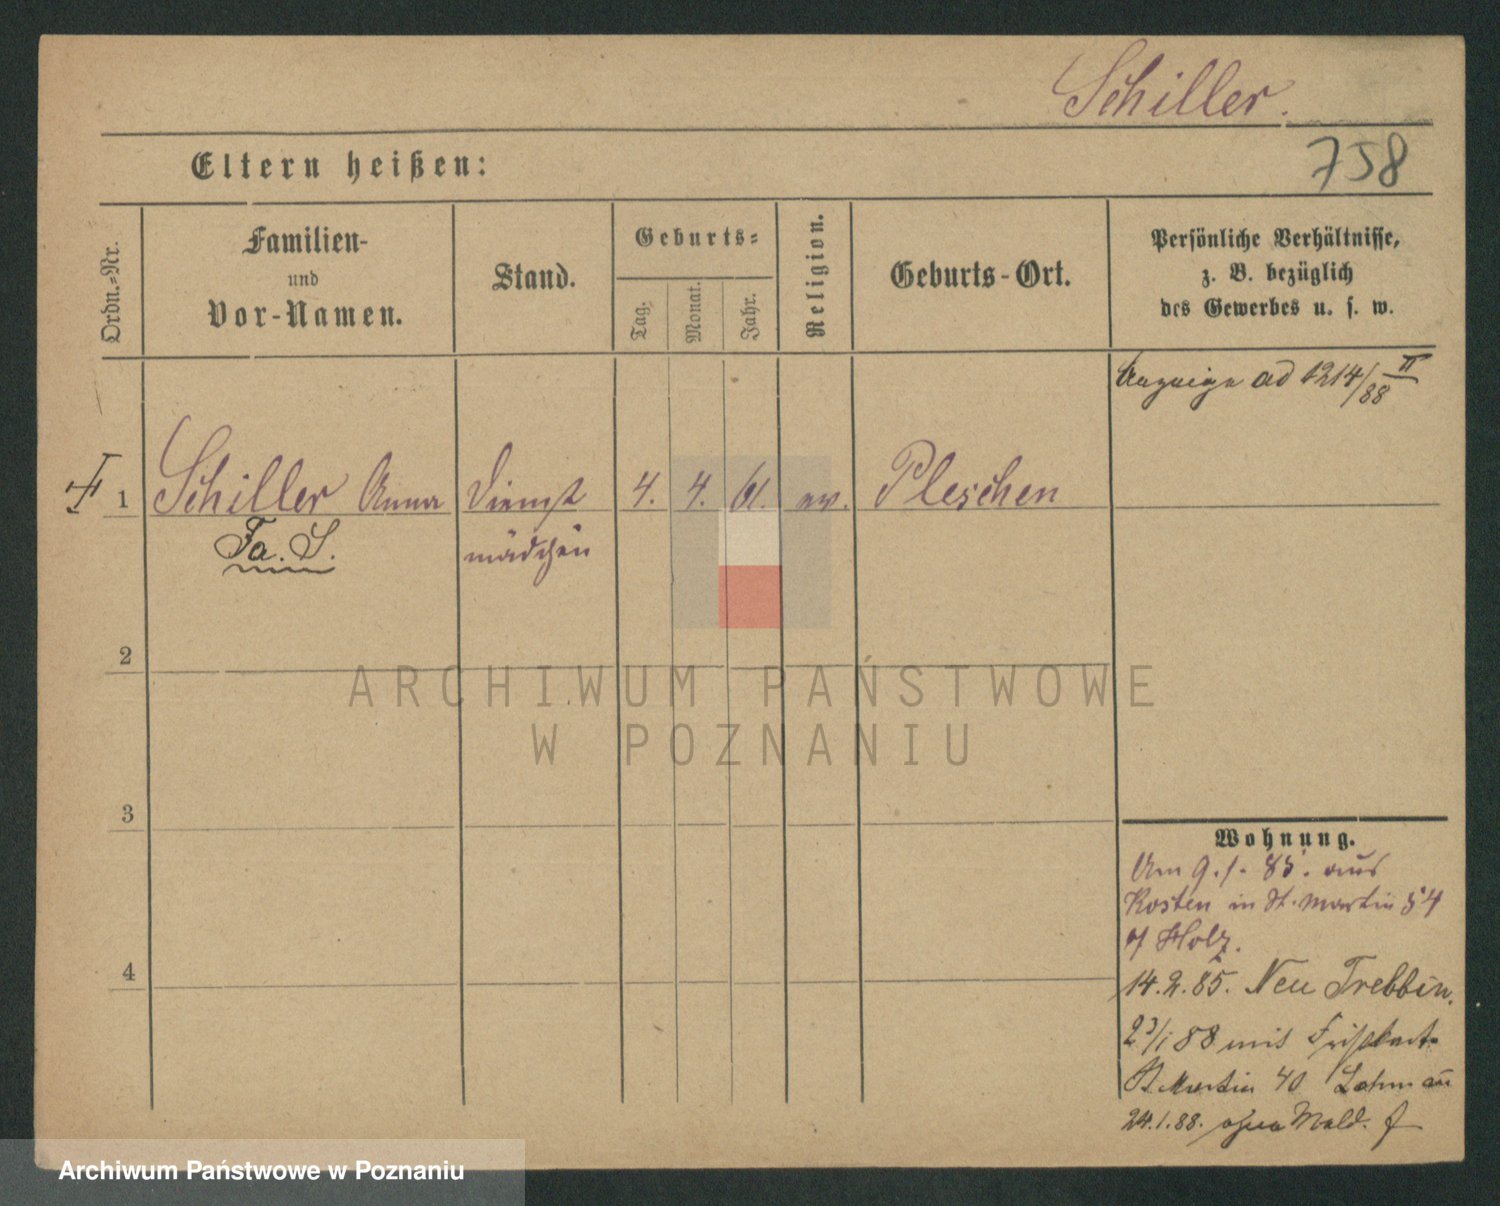 Schiller.
758
Eltern heißen:
Ordn.-Nr.
Familien-
und
Vor-Namen.
Stand.
Geburts-
Tag.
Monat.
Jahr.
Religion.
Geburts-Ort.
Persönliche Verhältnisse,
z. B. bezüglich
des Gewerbes u. s. w.
Anzeige ad 1214/88 II
1 Schiller Anna Dienst 4. 4. 61. ev. Pleschen
Fa. S. mädchen
2
3
4
Wohnung.
Am 9. 1. 85. aus
Kosten in St. Martin 54
b/ Holz.
14. 2. 85. Neu Trebbin.
23/1 88 aus
St Martin 40
24. 1. 88. ohne Meld.
ARCHIWUM PAŃSTWOWE
W POZNANIU
Archiwum Państwowe w Poznaniu